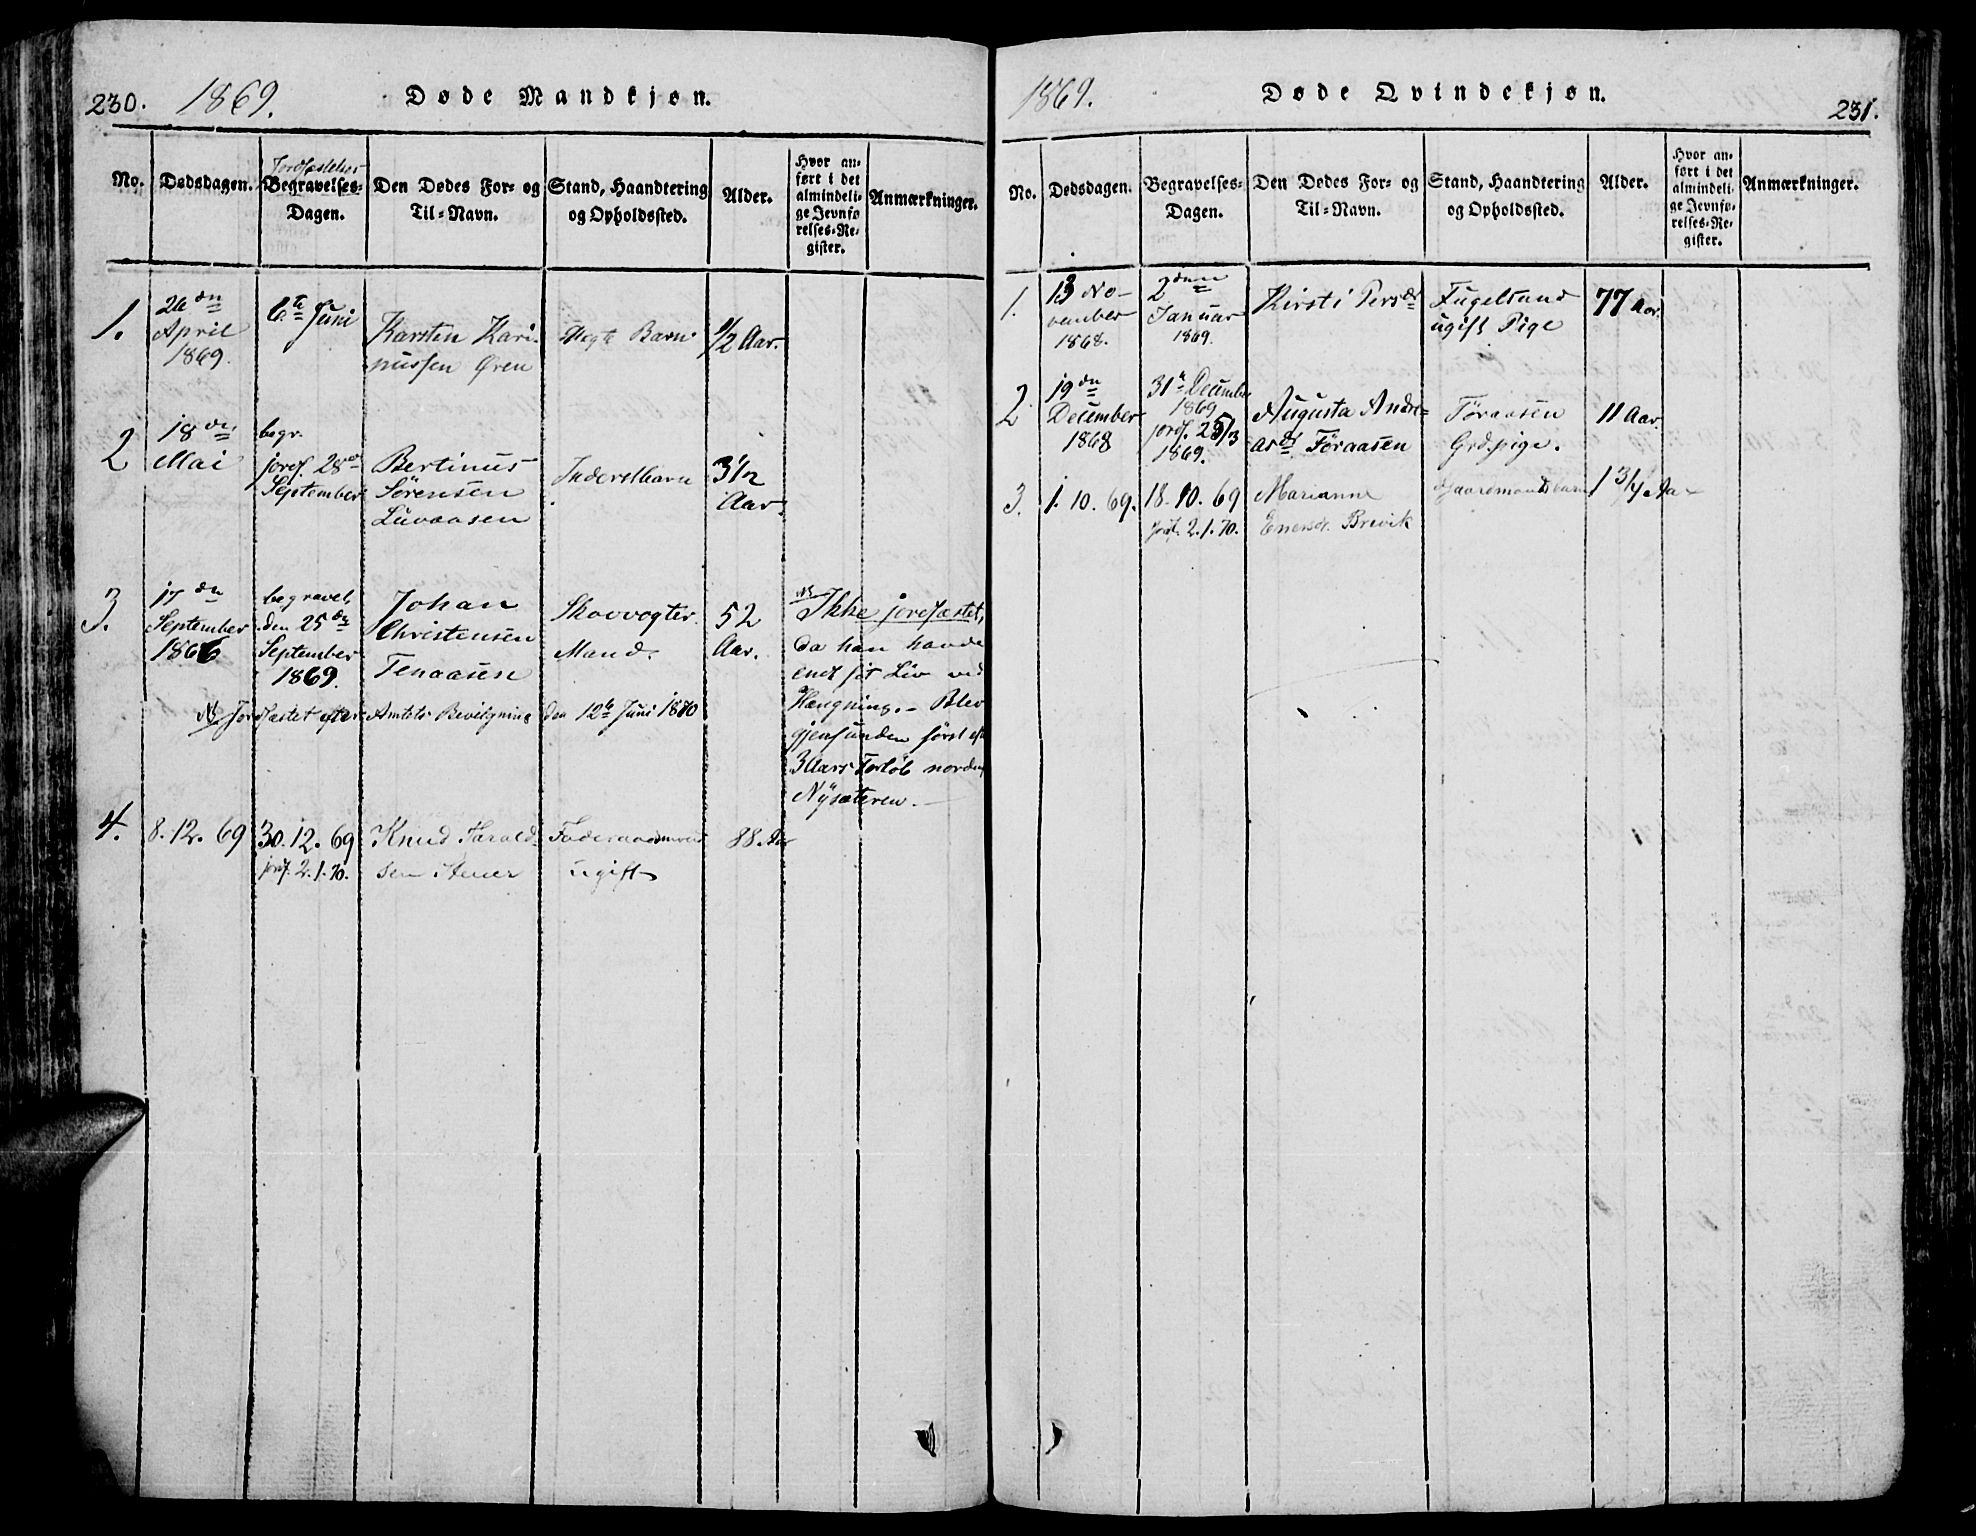 230. 1869. Døde Mandkjøn.
No. Dødsdagen. Jordfæstelses- Begravelses-Dagen. Den Dødes For- og Til-Navn. Stand, Haandtering og Opholdssted. Alder. Hvor anført i det almindelige Jevnførelses-Register. Anmærkninger.
1. 26 den April 1869. 6te Juni Karsten Karinussen Øren Barn 1/2 Aar.
2 18 den Mai begr. jordf. 28de September Bertinus Sørensen Luvaasen Inderstbarn 3 1/2 Aar.
3. 17 den September 1866 begravet den 25de September 1869. Johan Christensen Tenaasen Skovvogter Mand. 52 Aar. NB Ikke jordfæstet,
da han havde
endt sit Liv ved
Hængning. – Blev
gjenfunden først eft
3 Aars Forløb norden
Nysæteren. –
NB Jordfæstet efter Amtets Bevilgning den 12te Juni 1870
4. 8. 12. 69 30. 12. 69 jordf. 2. 1. 70. Knud Haraldsen Føderaadsmand ugift 88. Aar
1869. Døde Qvindekjøn. 231.
No. Dødsdagen. Begravelses-Dagen. Den Dødes For- og Til-Navn. Stand, Haandtering og Opholdssted. Alder. Hvor anført i det almindelige Jevnførelses-Register. Anmærkninger.
1. 13 November 1868. 2den Januar 1869. Kirsti Persdr Fugelsund ugift Pige 77 Aar.
2. 19 den December 1868 31te December 1869 jordf. 25/3 1869. Augusta Andreasdr Føraasen Føraasen Grdpige. 11 Aar.
3. 1. 10. 69. 18. 10. 69 jordf. 2. 1. 70. Marianne Enersdr. Brevik Gaardmandsbarn 1 3/4 Aar